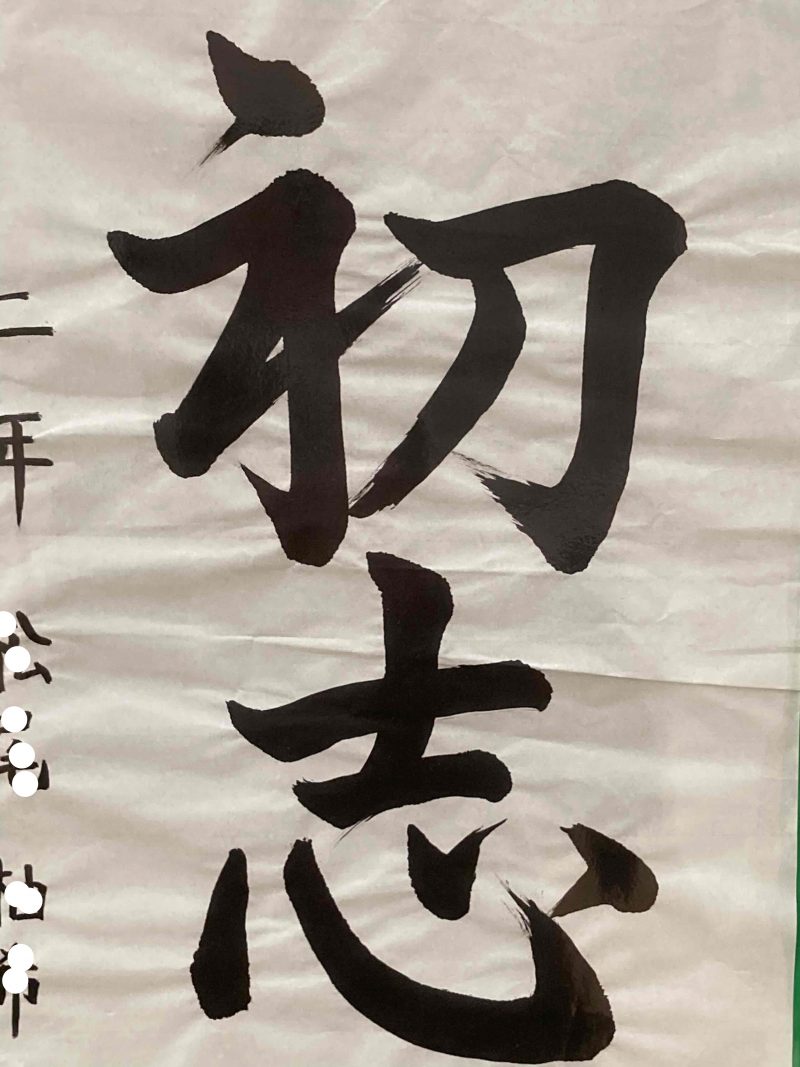 初志
二年